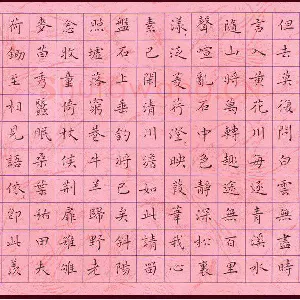 但去莫復問白雲無盡時
言入黃花川每逐青溪水
隨山將萬轉趣途無百里
聲喧亂石中色靜深松裏
漾泛菱荇澄映葭葦我心
素已閑清川澹如此請留
盤石上垂釣將已矣斜陽
照墟落窮巷牛羊歸野老
念牧童倚杖候荊扉雉雊
麥苗秀蠶眠桑葉稀田夫
荷鋤至相見語依即此羨